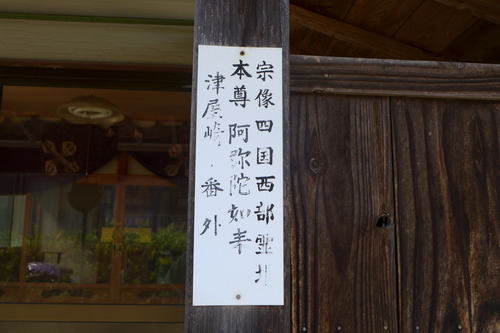 宗像四国西部霊場
本尊阿弥陀如来
津屋崎・番外